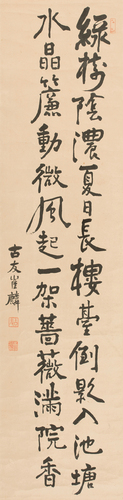 綠樹陰濃夏日長樓臺倒影入池塘
水晶簾動微風起一架薔薇滿院香
古友崔麟